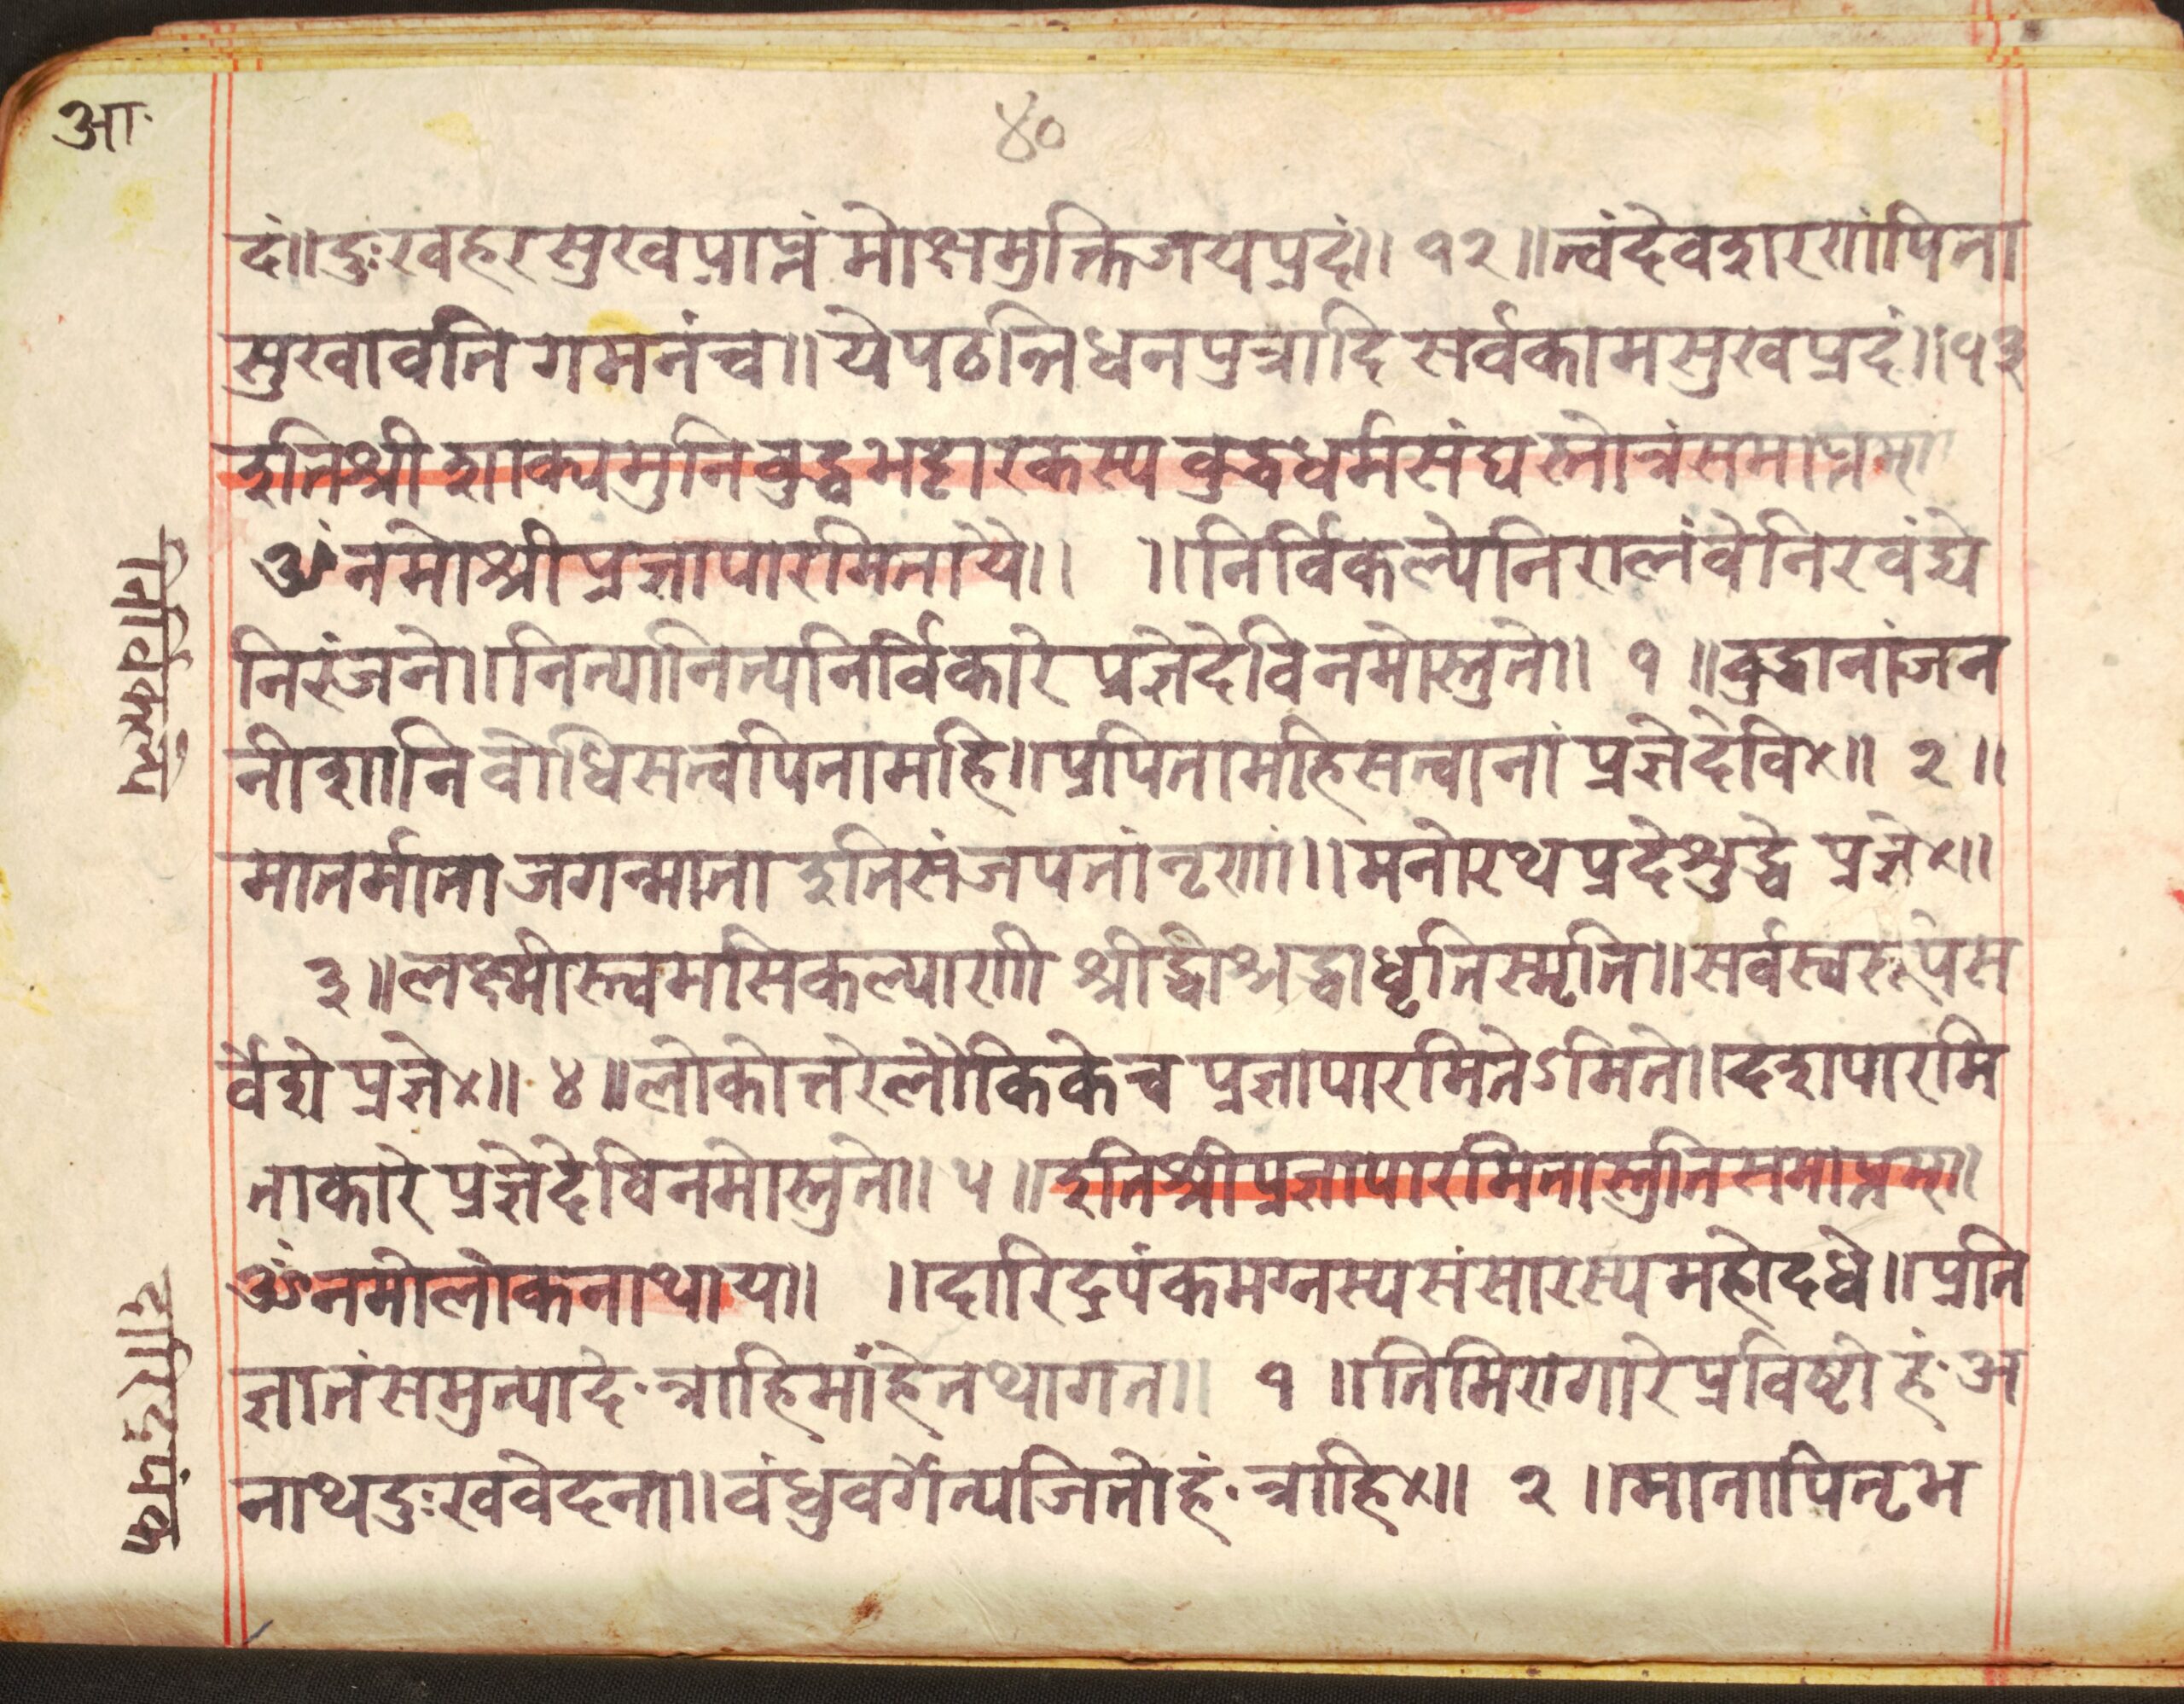 आ.
४०
दं॥दुःखहरसुखप्राप्तं मोक्षमुक्तिजयप्रदं॥ १२ ॥त्वंदेवशरणांपिता
सुखावतिगमनंच॥येपठन्तिधनपुत्रादि सर्वकामसुखप्रदं॥१३
इतिश्रीशाक्यमुनिबुद्धभट्टारकस्य बुद्धधर्मसंघस्तोत्रंसमाप्तम्॥
ॐनमोश्रीप्रज्ञापारमितायै॥ ॥निर्विकल्पेनिरालंवेनिरवंद्ये
निरंजने॥नित्यानित्यनिर्विकारे प्रज्ञेदेविनमोस्तुते॥ १ ॥बुद्धानांजन
नीशानि बोधिसत्वपितामहि॥प्रपितामहिसत्वानां प्रज्ञेदेवि४॥ २ ॥
मातर्माता जगन्माता इतिसंजपतांनृणां॥मनोरथप्रदेशुद्धे प्रज्ञे४॥
३ ॥लक्ष्मीस्त्वमसिकल्याणी श्रीर्द्धीश्रद्धाधृतिस्मृति॥सर्वस्वरूपेस
र्वेशे प्रज्ञे४॥ ४ ॥लोकोत्तरेलौकिकेच प्रज्ञापारमितेऽमिते॥दशपारमि
ताकारे प्रज्ञेदेविनमोस्तुते॥ ५ ॥इतिश्रीप्रज्ञापारमितास्तुतिसमाप्तम्॥
ॐनमोलोकनाथाय॥ ॥दारिद्रपंकमग्नस्य संसारस्य महोदधे॥प्रति
ज्ञानंसमुत्पादे.त्राहिमांहेतथागत॥ १ ॥तिमिरागारेप्रविष्टोहं.अ
नाथदुःखवेदना॥वंधुवर्गेत्यजितोहं.त्राहि४॥ २ ॥मातापितृभ
निर्विकल्पे
दारिद्रपंक